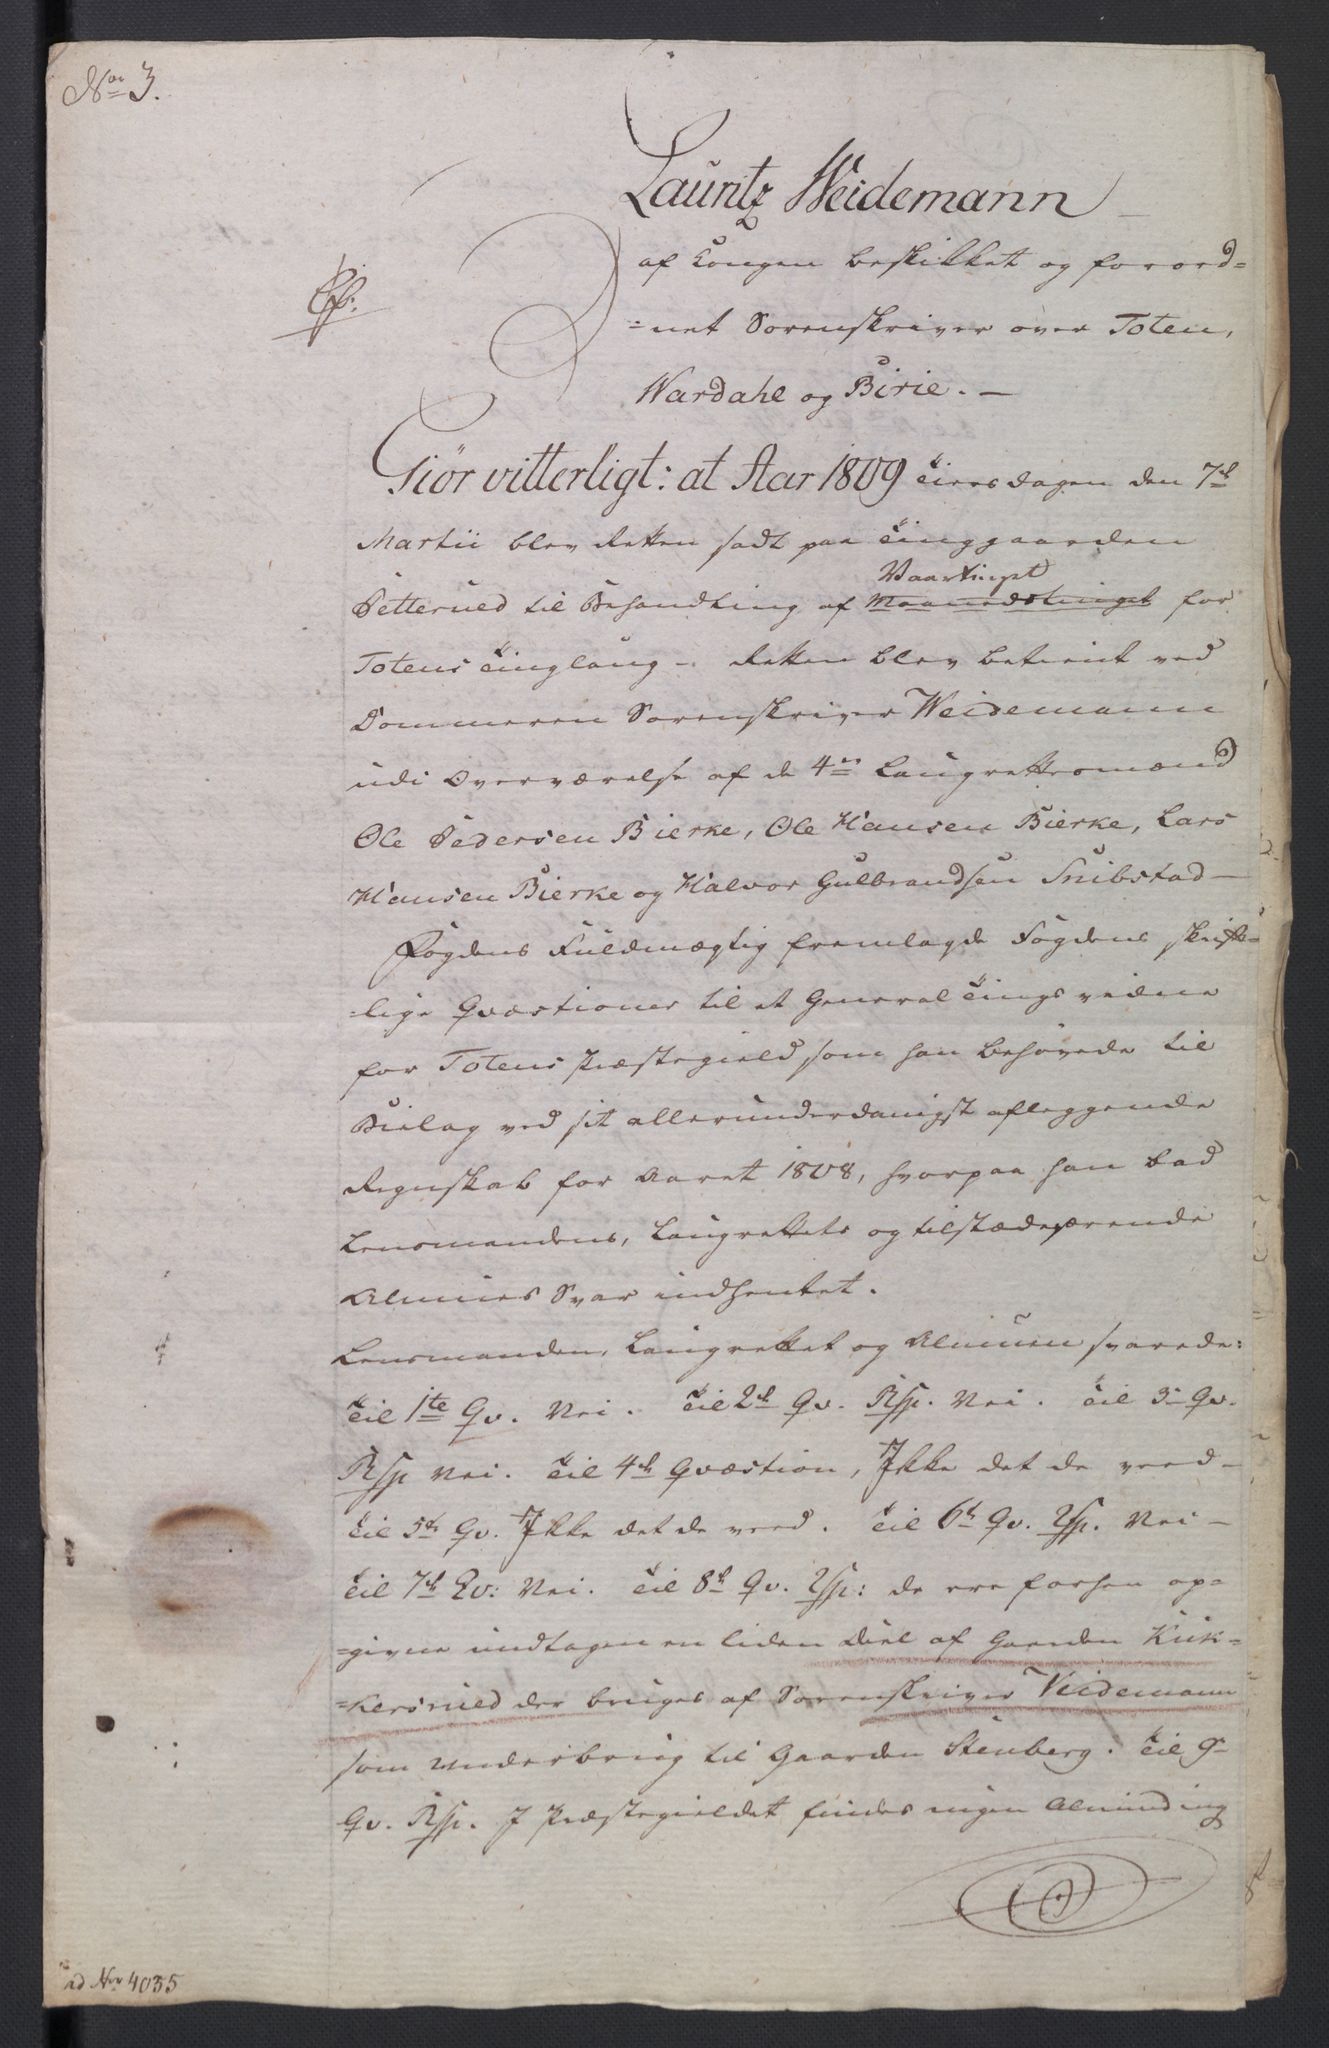 Nor 3.
Lauritz Weidemann
af Kongen beskikket og forord=
=net Sorenskriver over Toten,
Wardahl og Birie. —
Giør vitterligt: at Aar 1809 Tiersdagen den 7de
Martii blev Retten sadt paa Tinggaarden
Vaartinget
Petterued til Behandling af Maanedstinget for
Totens Tinglaug — Retten blev betient ved
Dommeren Sorenskriver Weidemann
udi Overværelse af de 4re Laugrettesmænd
Ole Pedersen Bierke, Ole Hansen Bierke, Lars
Hansen Bierke og Halvor Gulbrandsen Snibstad —
Fogdens Fuldmægtig fremlagde Fogdens skrift=
=lige Qvæstioner til et General Tingsvidne
for Totens Præstegield som han behøvede til
Bielag ved sit allerunderdanigst aflæggende
Regnskab for Aaret 1808, hvorpaa han bad
Lensmandens, Laugrettets og tilstædeværende
Almues Svar indhentet.
Lensmanden, Laugrettet og Almuen svarede:
Til 1te Qv. Nei. Til 2de Qv. Rsp. Nei. Til 3die Qv.
Rsp Nei. Til 4de Qvæstion, Ikke det de veed —
Til 5te Qv. Ikke det de veed. Til 6te Qv. Rsp. Nei —
Til 7de Qv: Nei. Til 8de Qv. Rsp: de ere forhen op=
=givne undtagen en liden Deel af Gaarden Kiik=
=kersrued der bruges af Sorenskriver Weidemann
som Underbrug til Gaarden Stenberg. Til 9de
Qv. Rsp. I Præstegieldet findes ingen Alminding
ad Nor 4035